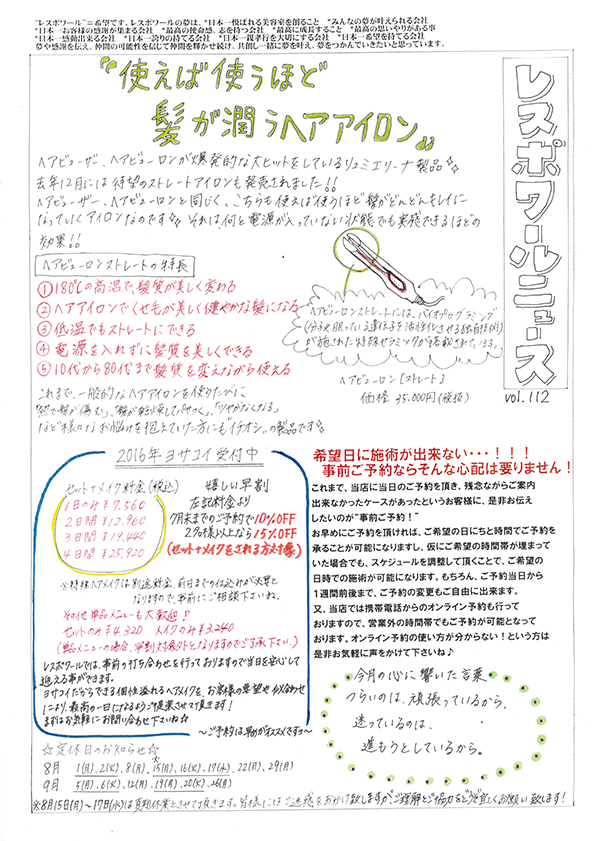 "レスポワール"=希望です。レスポワールの夢は、*日本一悦ばれる美容室を創ること *みんなの夢が叶えられる会社
*日本一お客様の感謝が集まる会社 *最高の使命感、志を持つ会社 *最高に成長すること *最高の思いやりがある事
*日本一感動出来る会社 *日本一誇りの持てる会社 *日本一親孝行を大切にする会社 *日本一希望を持てる会社
夢や感謝を伝え、仲間の可能性を信じて仲間を輝かせ続け、共創し一緒に夢を叶え、夢をつかんでいきたいと思っています。
レスポワールニュース
vol.112
"使えば使うほど
髪が潤うヘアアイロン"
ヘアビューザー、ヘアビューロンが爆発的な大ヒットをしているリュミエリーナ製品☆
去年12月には待望のストレートアイロンも発売されました!!
ヘアビューザー、ヘアビューロンと同じく、こちらも使えば使うほど髪がどんどんキレイに
なっていくアイロンなのです☆それは、何と電源が入っていない状態でも実感できるほどの
効果!!
ヘアビューロンストレートの特長
①180℃の高温で髪質が美しく変わる
②ヘアアイロンでくせ毛が美しく健やかな髪になる
③低温でもストレートにできる
④電源を入れずに髪質を美しくできる
⑤10代から80代まで髪質を変えながら使える
ヘアビューロンストレートには、バイオプログラミング
(分秒眠っている遺伝子を活性化させる独自技術)
が施された特殊セラミックが搭載されています。
ヘアビューロン[ストレート]
価格 35.000円(税抜)
これまで、一般的なヘアアイロンを使うたびに
「熱で髪が傷む」、「髪が乾燥してパサつく」、「ツヤがなくなる」
など様々なお悩みを抱えていた方にも"イチオシ"の製品です☆
2016年ヨサコイ受付中
セット+メイク料金(税込)
1日のみ¥7.560
2日間¥12.960
3日間¥19.440
4日間¥25.920
嬉しい早割
左記料金より
7月末までのご予約で10%OFF
2名様以上なら15%OFF
(セット+メイクをされる方対象)
※特殊ヘアメイクは別途料金、前日までの仕込みが必要と
なりますので、事前にご相談下さいね。
その他単品メニューも大歓迎♪
セットのみ¥4.320 メイクのみ¥3.240
(単品メニューの場合、早割対象外となりますのでご了承下さい。)
レスポワールでは、事前の打ち合わせを行っておりますので当日を安心して
迎える事ができます。
ヨサコイだからできる個性溢れるヘアメイクを、お客様の要望やイメージに合わせ
により、最高の一日になるようご提案させて頂きます!
まずはお気軽にお問い合わせ下さいね☆
〜ご予約は早めがオススメです♪〜
希望日に施術が出来ない・・・!!!
事前ご予約ならそんな心配は要りません!
これまで、当店に当日のご予約を頂き、残念ながらご案内
出来なかったケースがあったというお客様に、是非お伝え
したいのが"事前ご予約!"
お早めにご予約を頂ければ、ご希望の日にちと時間でご予約を
承ることが可能になりますし、仮にご希望の時間帯が埋まって
いた場合でも、スケジュールを調整して頂くことで、ご希望の
日時での施術が可能になります。もちろん、ご予約当日から
1週間前後まで、ご予約の変更もご自由に出来ます。
又、当店では携帯電話からのオンライン予約も行って
おりますので、営業外の時間帯でもご予約が可能となって
おります。オンライン予約の使い方が分からない!という方は
是非お気軽に声をかけて下さいね♪
今月の心に響いた言葉
つらいのは、頑張っているから。
迷っているのは、
進もうとしているから。
☆定休日のお知らせ☆
8月 1(月)、2(火)、8(月)、15(月)、16(火)、17(水)、22(月)、29(月)
9月 5(月)、6(火)、12(月)、19(月)、20(火)、26(月)
※8月15日(月)〜17日(水)は夏期休業とさせて頂きます。皆様にはご迷惑をおかけ致しますが、ご理解とご協力をどうぞ宜しくお願い致します!